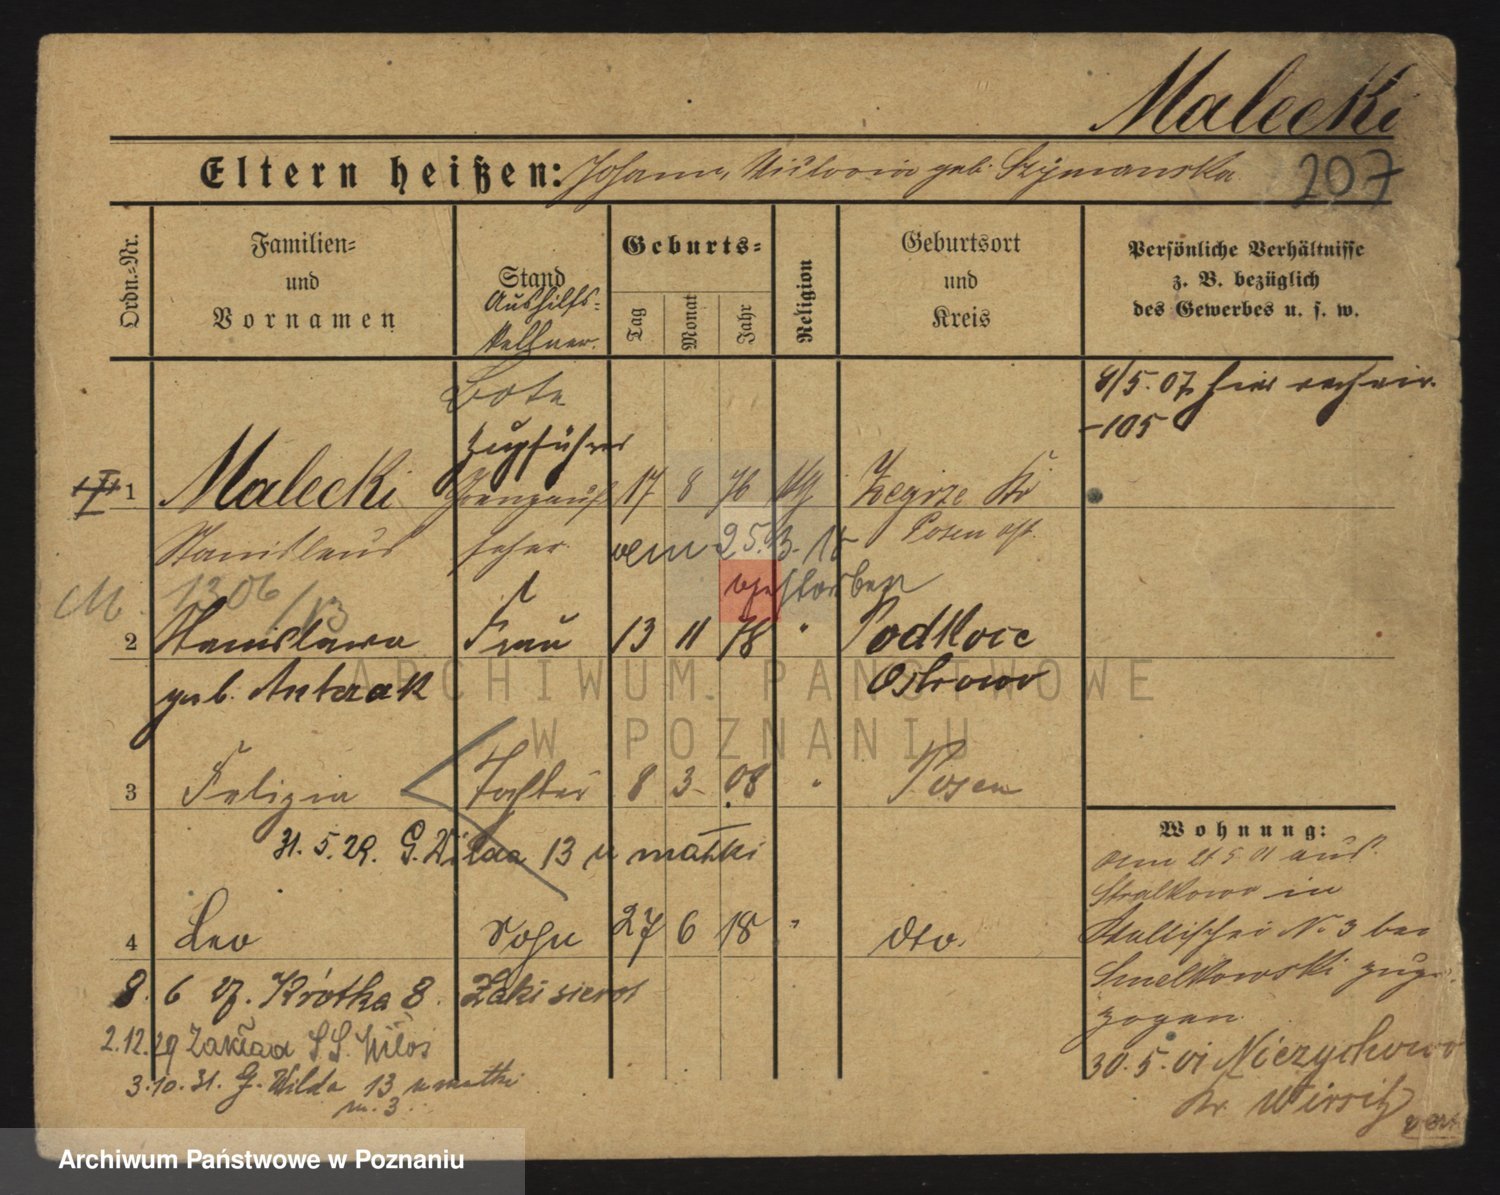 Malecki
Eltern heißen: Johann, Victoria geb. Szymanska
207
Ordn.-Nr.
Familien-
und
Vornamen
Stand
Aushilfs-
kellner.
Geburts-
Tag
Monat
Jahr
Religion
Geburtsort
und
Kreis
Persönliche Verhältnisse
z. B. bezüglich
des Gewerbes u. s. w.
Bote
Zugführer
1 Malecki 17 8 76 Zegrze Kr
Stanislaus am 25.3.18 Posen ost.
verstorben
M. 1306/13
2 Stanislawa Frau 13 11 78 " Podkoce
geb. Antczak Ostrowo
3 Felizia Tochter 8 3 08 " Posen
31.5.29. G. Wilda 13 u matki
4 Leo Sohn 27 6 18 " dto.
8. 6 27. Krótka 8. Zakł sierot
2.12.29 Zakład SS. Miłos
3.10.31. G. Wilda 13 u matki
m. 3.
8/5.07 hier
-105
Wohnung:
vom 21 5 01 aus
Stralkowo in
No 3 bei
Smelkowski zuge-
zogen
30.5.01 Niezychowo
Kr. Wirsitz
verz
ARCHIWUM PAŃSTWOWE
W POZNANIU
Archiwum Państwowe w Poznaniu